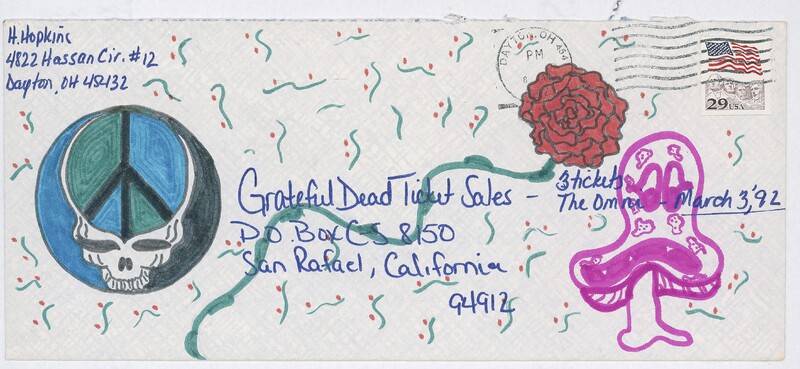 H. Hopkins
4822 Hassan Cir. #12
Dayton, OH 45432
DAYTON, OH 454
PM
8
29 USA
Grateful Dead Ticket Sales - 3 tickets
The Omni - March 3, '92
P.O. Box CS 8150
San Rafael, California
94912